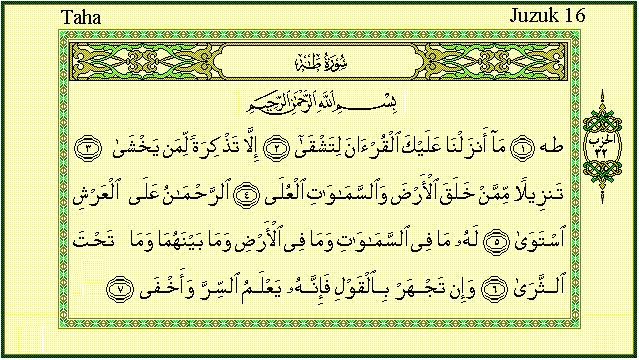 Taha
Juzuk 16
سُورَةُ طه
بِسْمِ اللَّهِ الرَّحْمَٰنِ الرَّحِيمِ
طه ١ مَآ أَنزَلْنَا عَلَيْكَ الْقُرْءَانَ لِتَشْقَىٰٓ ٢ إِلَّا تَذْكِرَةً لِّمَن يَخْشَىٰ ٣
تَنزِيلًا مِّمَّنْ خَلَقَ الْأَرْضَ وَالسَّمَٰوَٰتِ الْعُلَى ٤ الرَّحْمَٰنُ عَلَى الْعَرْشِ
اسْتَوَىٰ ٥ لَهُۥ مَا فِى السَّمَٰوَٰتِ وَمَا فِى الْأَرْضِ وَمَا بَيْنَهُمَا وَمَا تَحْتَ
الثَّرَىٰ ٦ وَإِن تَجْهَرْ بِالْقَوْلِ فَإِنَّهُۥ يَعْلَمُ السِّرَّ وَأَخْفَى ٧
الحزب
٣٢